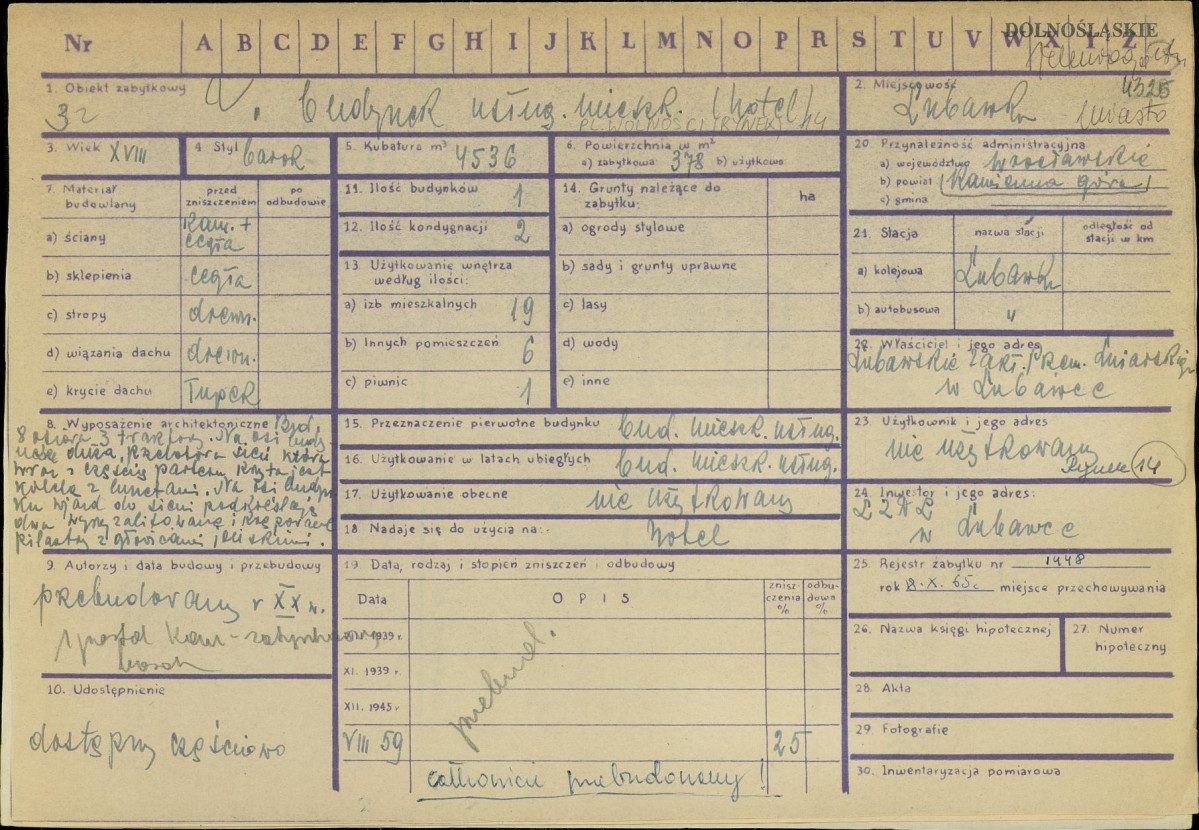 Nr A B C D E F G H I J K L M N O P R S T U V W X Y Z
DOLNOŚLĄSKIE
1. Obiekt zabytkowy
32
budynek usług. mieszk. (hotel)
PL. WOLNOŚCI (RYNEK) 14
2. Miejscowość
4325
Lubawka miasto
3. Wiek XVIII
4. Styl barok
5. Kubatura m³ 4536
6. Powierzchnia w m²
a) zabytkowa: 378 b) użytkowa
20. Przynależność administracyjna
a) województwo wrocławskie
b) powiat (Kamienna góra)
c) gmina
7. Materiał budowlany
przed zniszczeniem
po odbudowie
a) ściany kam. + cegła
b) sklepienia cegła
c) stropy drewn.
d) wiązania dachu drewn.
e) krycie dachu łupek
11. Ilość budynków 1
12. Ilość kondygnacji 2
13. Użytkowanie wnętrza według ilości:
a) izb mieszkalnych 19
b) Innych pomieszczeń 6
c) piwnic 1
14. Grunty należące do zabytku: ha
a) ogrody stylowe
b) sady i grunty uprawne
c) lasy
d) wody
e) inne
21. Stacja
nazwa stacji
odległość od stacji w km
a) kolejowa Lubawka
b) autobusowa "
22. Właściciel i jego adres
Lubawskie Zakł. Przem. Lniarskiego
w Lubawce
8. Wyposażenie architektoniczne Bud.
8 osiowa 3 traktowy. Na osi budyn
duża, sień która
wraz z częścią parteru kryta jest
kolebką z lunetami. Na osi budyn
ku wjazd do sieni podkreślają
dwa
pilastry z głowicami jońskimi.
15. Przeznaczenie pierwotne budynku bud. mieszk. usług.
16. Użytkowanie w latach ubiegłych bud. mieszk. usług.
17. Użytkowanie obecne nie użytkowany
18 Nadaje się do użycia na: hotel
23. Użytkownik i jego adres
nie użytkowany
Rynek 14
24. Inwestor i jego adres:
w Lubawce
9. Autorzy i data budowy i przebudowy
przebudowany w XX w.
10. Udostępnienie
dostępny częściowo
19 Data, rodzaj i stopień zniszczeń i odbudowy
Data
OPIS
zniszczenia %
odbudowa %
1939 r.
XI. 1939 r.
XII. 1945 r.
VIII 59 25
przebud.
całkowicie przebudowany!
25. Rejestr zabytku nr 1448
rok 18.X.65 r. miejsce przechowywania
26. Nazwa księgi hipotecznej
27. Numer hipoteczny
28. Akta
29. Fotografie
30. Inwentaryzacja pomiarowa